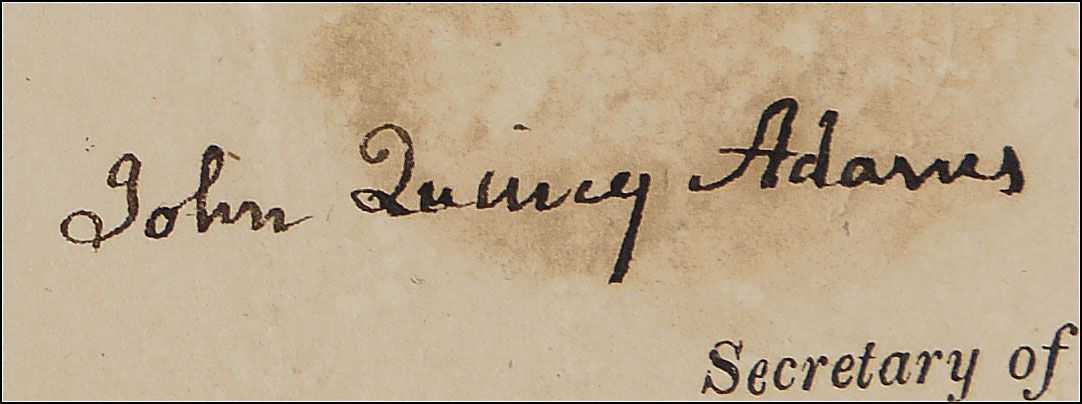 John Quincy Adams
Secretary of